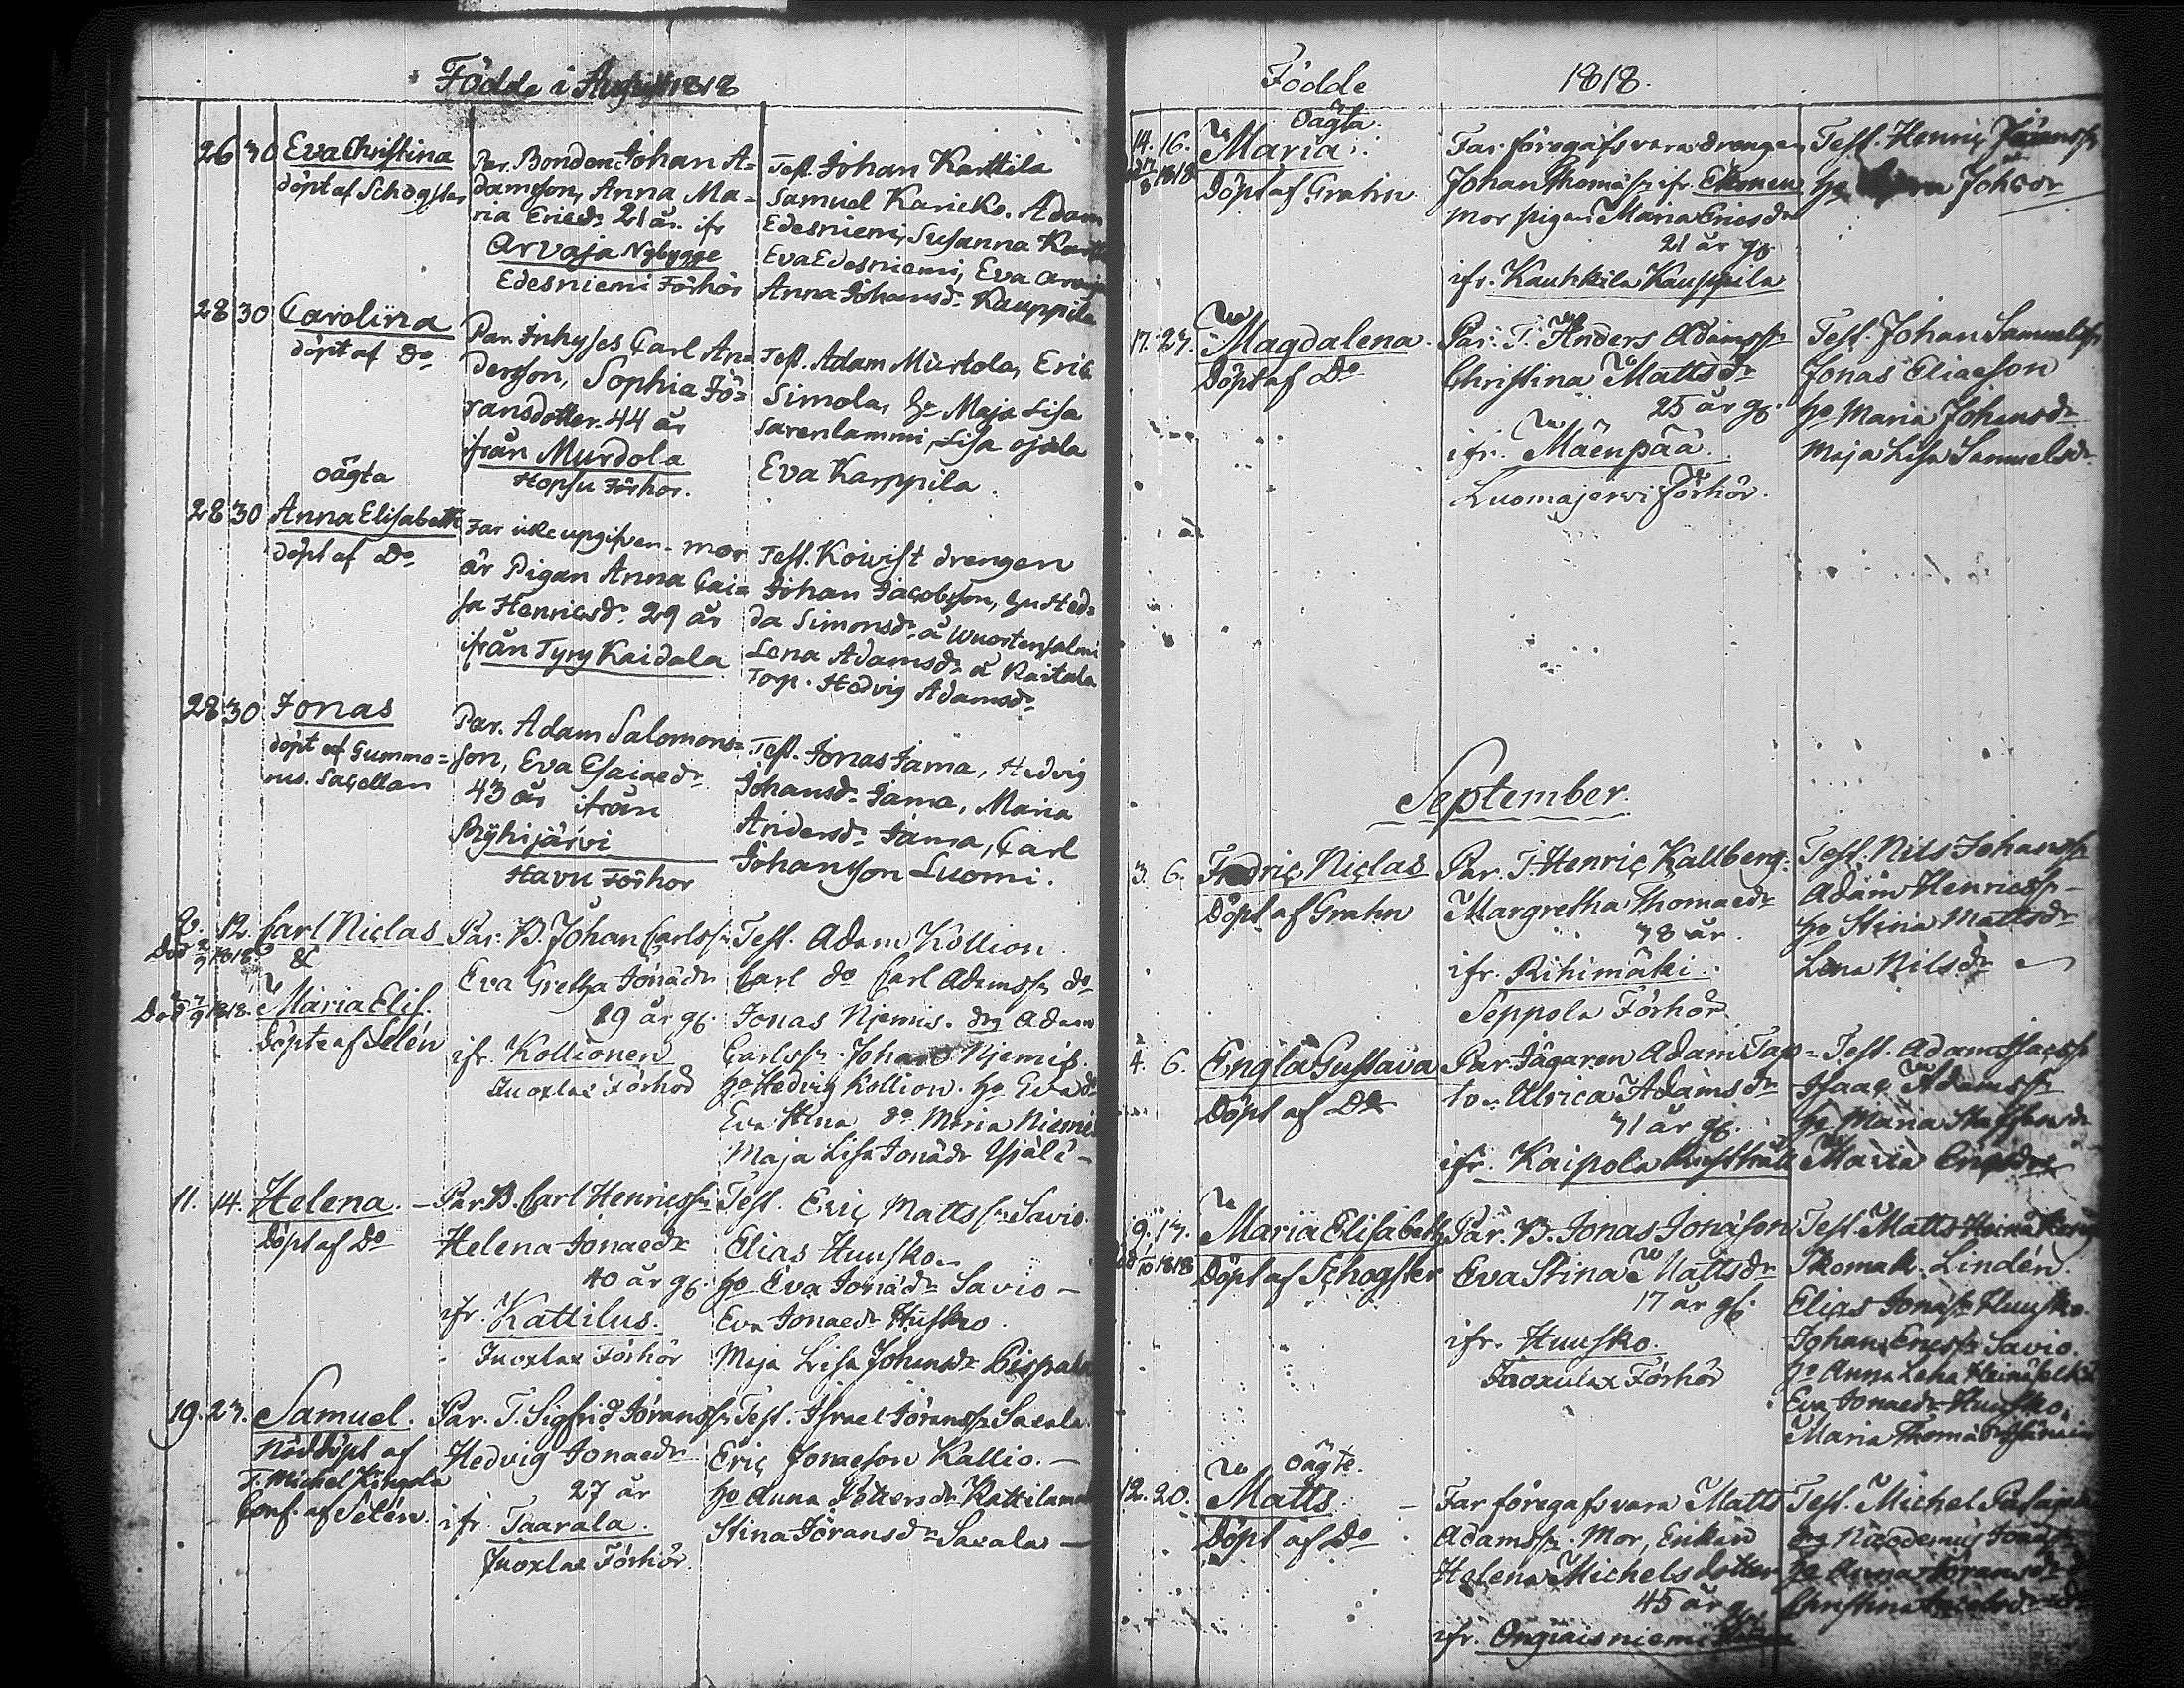 Födde i August 1818
26 30 Eva Christina
döpt af Schogster
Par. Bonden Johan A=
damsson, Anna Ma=
ria Ericdr 21 år. ifr
Arvaja Nybygge
Edesniemi Förhör
Test. Johan Karttila
Samuel Karicko. Adam
Edesniemi, Susanna
Eva Edesniemi, Eva
Anna Johansdr Kauppila
28 30 Carolina
döpt af Do
Par. Inhyses Carl An=
dersson, Sophia Jö=
ransdotter. 44 år
ifrån Murdola
Hopsu Förhör.
Test. Adam Murtola, Eric
Simola, hu Maja Lisa
Sarenlammi, Lisa Ojala
Eva Karppila.
oägta
28 30 Anna Elisabeth
döpt af Do
Far icke upgifven. mor
är Pigan Anna Caj=
sa Henricsdr. 29 år
ifrån Tyry Kaidala
Test. Koivist drengen
Johan Jacobsson, hu Hed=
da Simonsdr å Wuortensalmi
Lena Adamsdr å Raitala
Torp. Hedvig Adamsdr
28 30 Jonas
döpt af Gumme=
rus. Sacellan
Par. Adam Salomons=
son, Eva Esaiaedr
43 år ifrån
Ryhijärvi
Havu Förhör
Test. Jonas Jama, Hedvig
Johansdr Jama, Maria
Andersdr Jama, Carl
Johansson Luomi.
8. 12. Carl Niclas
&
Maria Elis.
Döpte af Selén
Par. B. Johan Carlss:
Eva Gretha Jonædr
29 år gl.
ifr. Kollionen
Juoxlax Förhör
Test. Adam Kollion
Carl do Carl Adamss: do
Jonas Njemis. drg Adam
Carlss: Johan Njemis.
ho Hedvig Kollion. ho Eva do
Eva Stina do Maria Niemi
Maja Lisa Jonædr
11. 14. Helena.
Döpt af Do
Par B. Carl Henricss:
Helena Jonaedr
40 år gl.
ifr. Kattilus.
Juoxlax Förhör
Test. Eric Mattss: Savio
Elias Huusko.
ho Eva Jonædr Savio
Eva Jonaedr Husko.
Maja Lisa Johansdr Pispala
19. 27. Samuel.
Nöddöpt af
T. Michel
Conf. af Selén
Par. T. Sigfrid Jöranss:
Hedvig Jonaedr
27 år
ifr. Taarala.
Juoxlax Förhör.
Test. Israel Jöranss: Saxala
Eric Jonaeson Kallio.
ho Anna Pettersdr
Stina Jöransdr Saxala
Födde 1818.
oägta
14. 16. Maria.
Döpt af Grahn
Far. föregafs vara drengen
Johan Thomæs: ifr. Ekonen
Mor pigan Maria Ericsdr
21 år gl.
ifr. Kauhkila Kauppila
Test. Henric Jöranss:
17. 27. Magdalena.
Döpt af Do
Par. T. Anders Adamss:
Christina Mattsdr
25 år gl.
ifr. Mäenpää.
Luomajerwi Förhör.
Test. Johan Samuelss:
Jonas Eliaeson
ho Maria Johansdr
Maja Lisa Samuelsdr
September.
3. 6. Fredric Niclas
Döpt af Grahn
Par. T. Henric Kallberg.
Margretha Thomaedr
38 år.
ifr. Rihimäki.
Seppola Förhör
Test. Nils Johanss:
Adam Henricss:
ho Stina Mattsdr
Lena Nilsdr
4. 6. Engla Gustava
Döpt af Do
Par. Jägaren Adam Tap=
lo. Ulrica Adamsdr
31 år gl.
ifr. Kaipola
Test. Adam Isacss:
Isaac Adamss:
ho Maria Staffansdr
Maria
9. 13. Maria Elisabeth
Döpt af Schogster
Par. B. Jonas Jonæson
Eva Stina Mattsdr
17 år gl.
ifr. Huusko.
Juoxulax Förhör
Test. Matts
Skomak. Lindén.
Elias Jonæs: Huusko.
Johan Ericss: Savio.
ho Anna Lena
Eva Jonaedr Huusko.
Maria Thomædr
oägte.
12. 20. Matts.
Döpt af Do
Far föregafs vara Matts
Adamss: Mor, Enkan
Helena Michelsdotter
45 år gl.
ifr. Ongiaisniemi
Test. Michel
drg Nicodemus
ho Anna Jöransdr
Christina